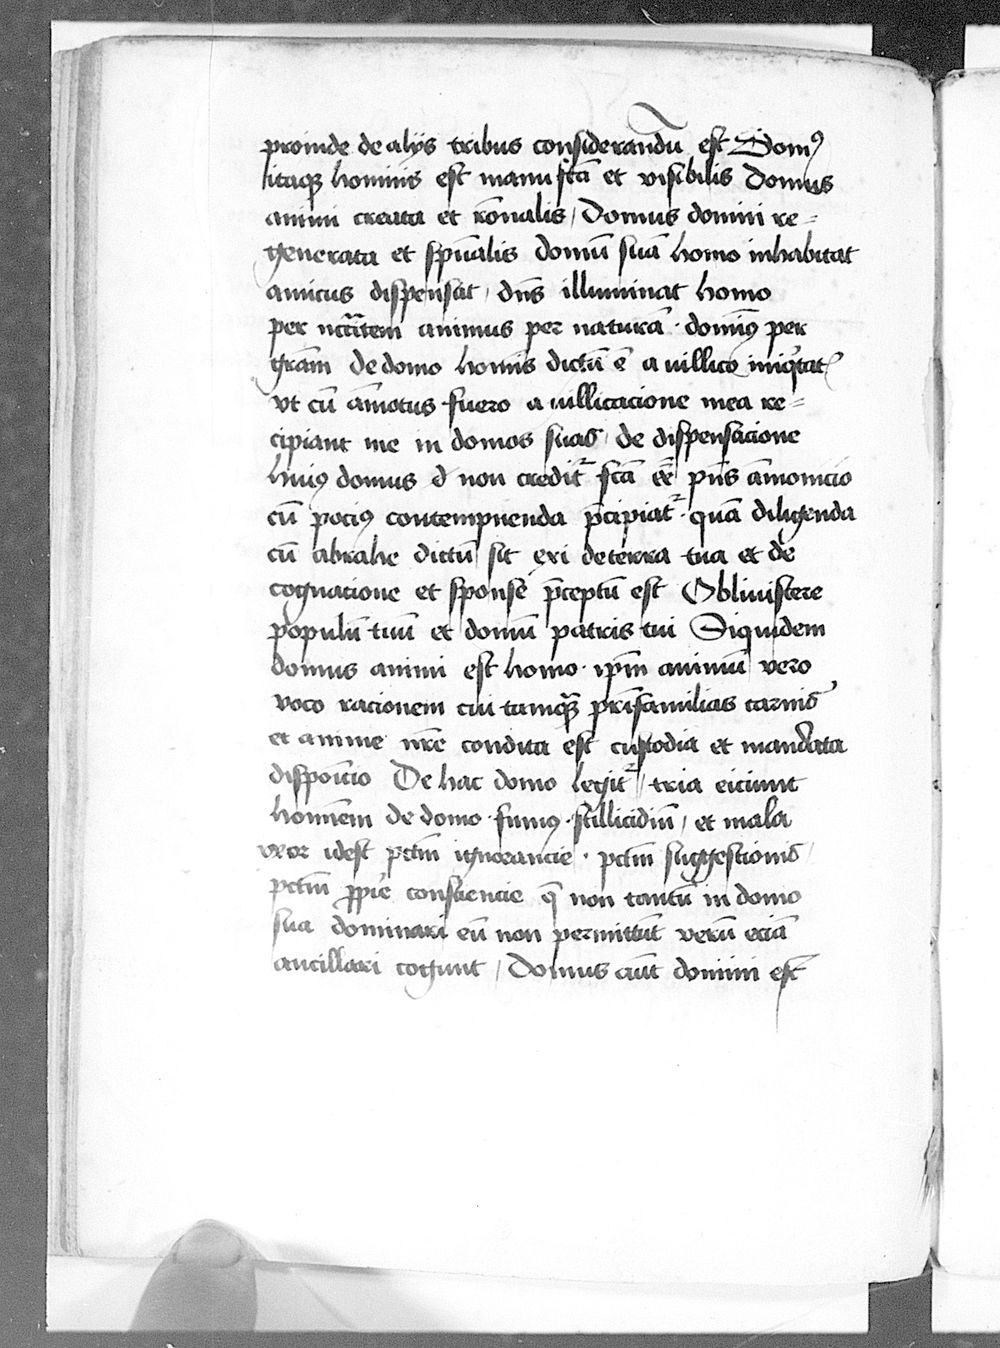 proinde de alijs tribus considerandū est Domꝰ
itaqꝫ hominis est manu fctā et visibilis Domus
animi creata et rōnalis / Domus domini re=
generata et spūalis domū suā homo inhabitat
amicus dispensat / dn̄s illuminat homo
per nctāītem animus per naturā · domīꝰ per
grām de domo homīs dictū ē a villico iniqtat
vt cū āmotus fuero a villicacione mea re=
cipiant me in domos suas / de dispensacione
huiꝰ domus non credit fctā eē pn̄s āmonicio
cū pociꝰ contempnenda p̄cipiat · quā diligenda
cū abrahe dictū sit exi de terra tua et de
cognacione et sponse p̄ceptū est Obliuiscere
populū tuū et domū patris tui Siquidem
domus animi est homo · ip̄m animū vero
voco racionem cui tamqꝫ prīsfamilias carnis
et anime nr̄e condita est custodia et mandata
dispoīcio De hac domo legit / tria eiciunt
homīem de domo · fumꝰ · stillicidiū / et mala
vxor idest pctm̄ ignorancie · pctm̄ suggestionis /
pctm̄ pp̄ie consciencie q̄ non tantū in domo
sua dominari eū non permittūt verū eciā
ancillari cogunt / Domus aūt domini est